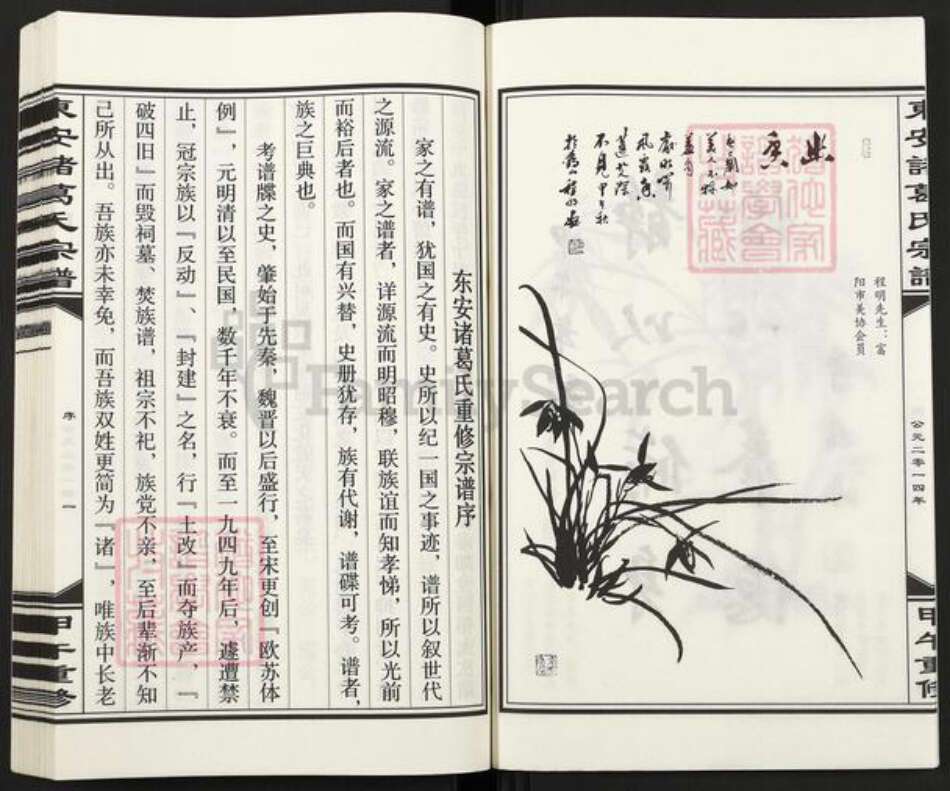 幽香
程明先生：富
阳市美协会員
公元二零一四年
甲午重修
东安诸葛氏重修宗谱序
家之有谱，犹国之有史。史所以纪一国之事迹，谱所以叙世代
之源流。家之谱者，详源流而明昭穆，联族谊而知孝悌，所以光前
而裕后者也。而国有兴替，史册犹存，族有代谢，谱碟可考。谱者，
族之巨典也。
考谱牒之史，肇始于先秦，魏晋以后盛行，至宋更创『欧苏体
例』，元明清以至民国，数千年不衰。而至一九四九年后，遽遭禁
止，冠宗族以『反动』、『封建』之名，行『土改』而夺族产，『
破四旧』而毁祠墓、焚族谱，祖宗不祀，族党不亲，至后辈渐不知
己所从出。吾族亦未幸免，而吾族双姓更简为『诸』，唯族中长老
東安諸葛氏宗譜
序
一
甲午重修
FamilySearch